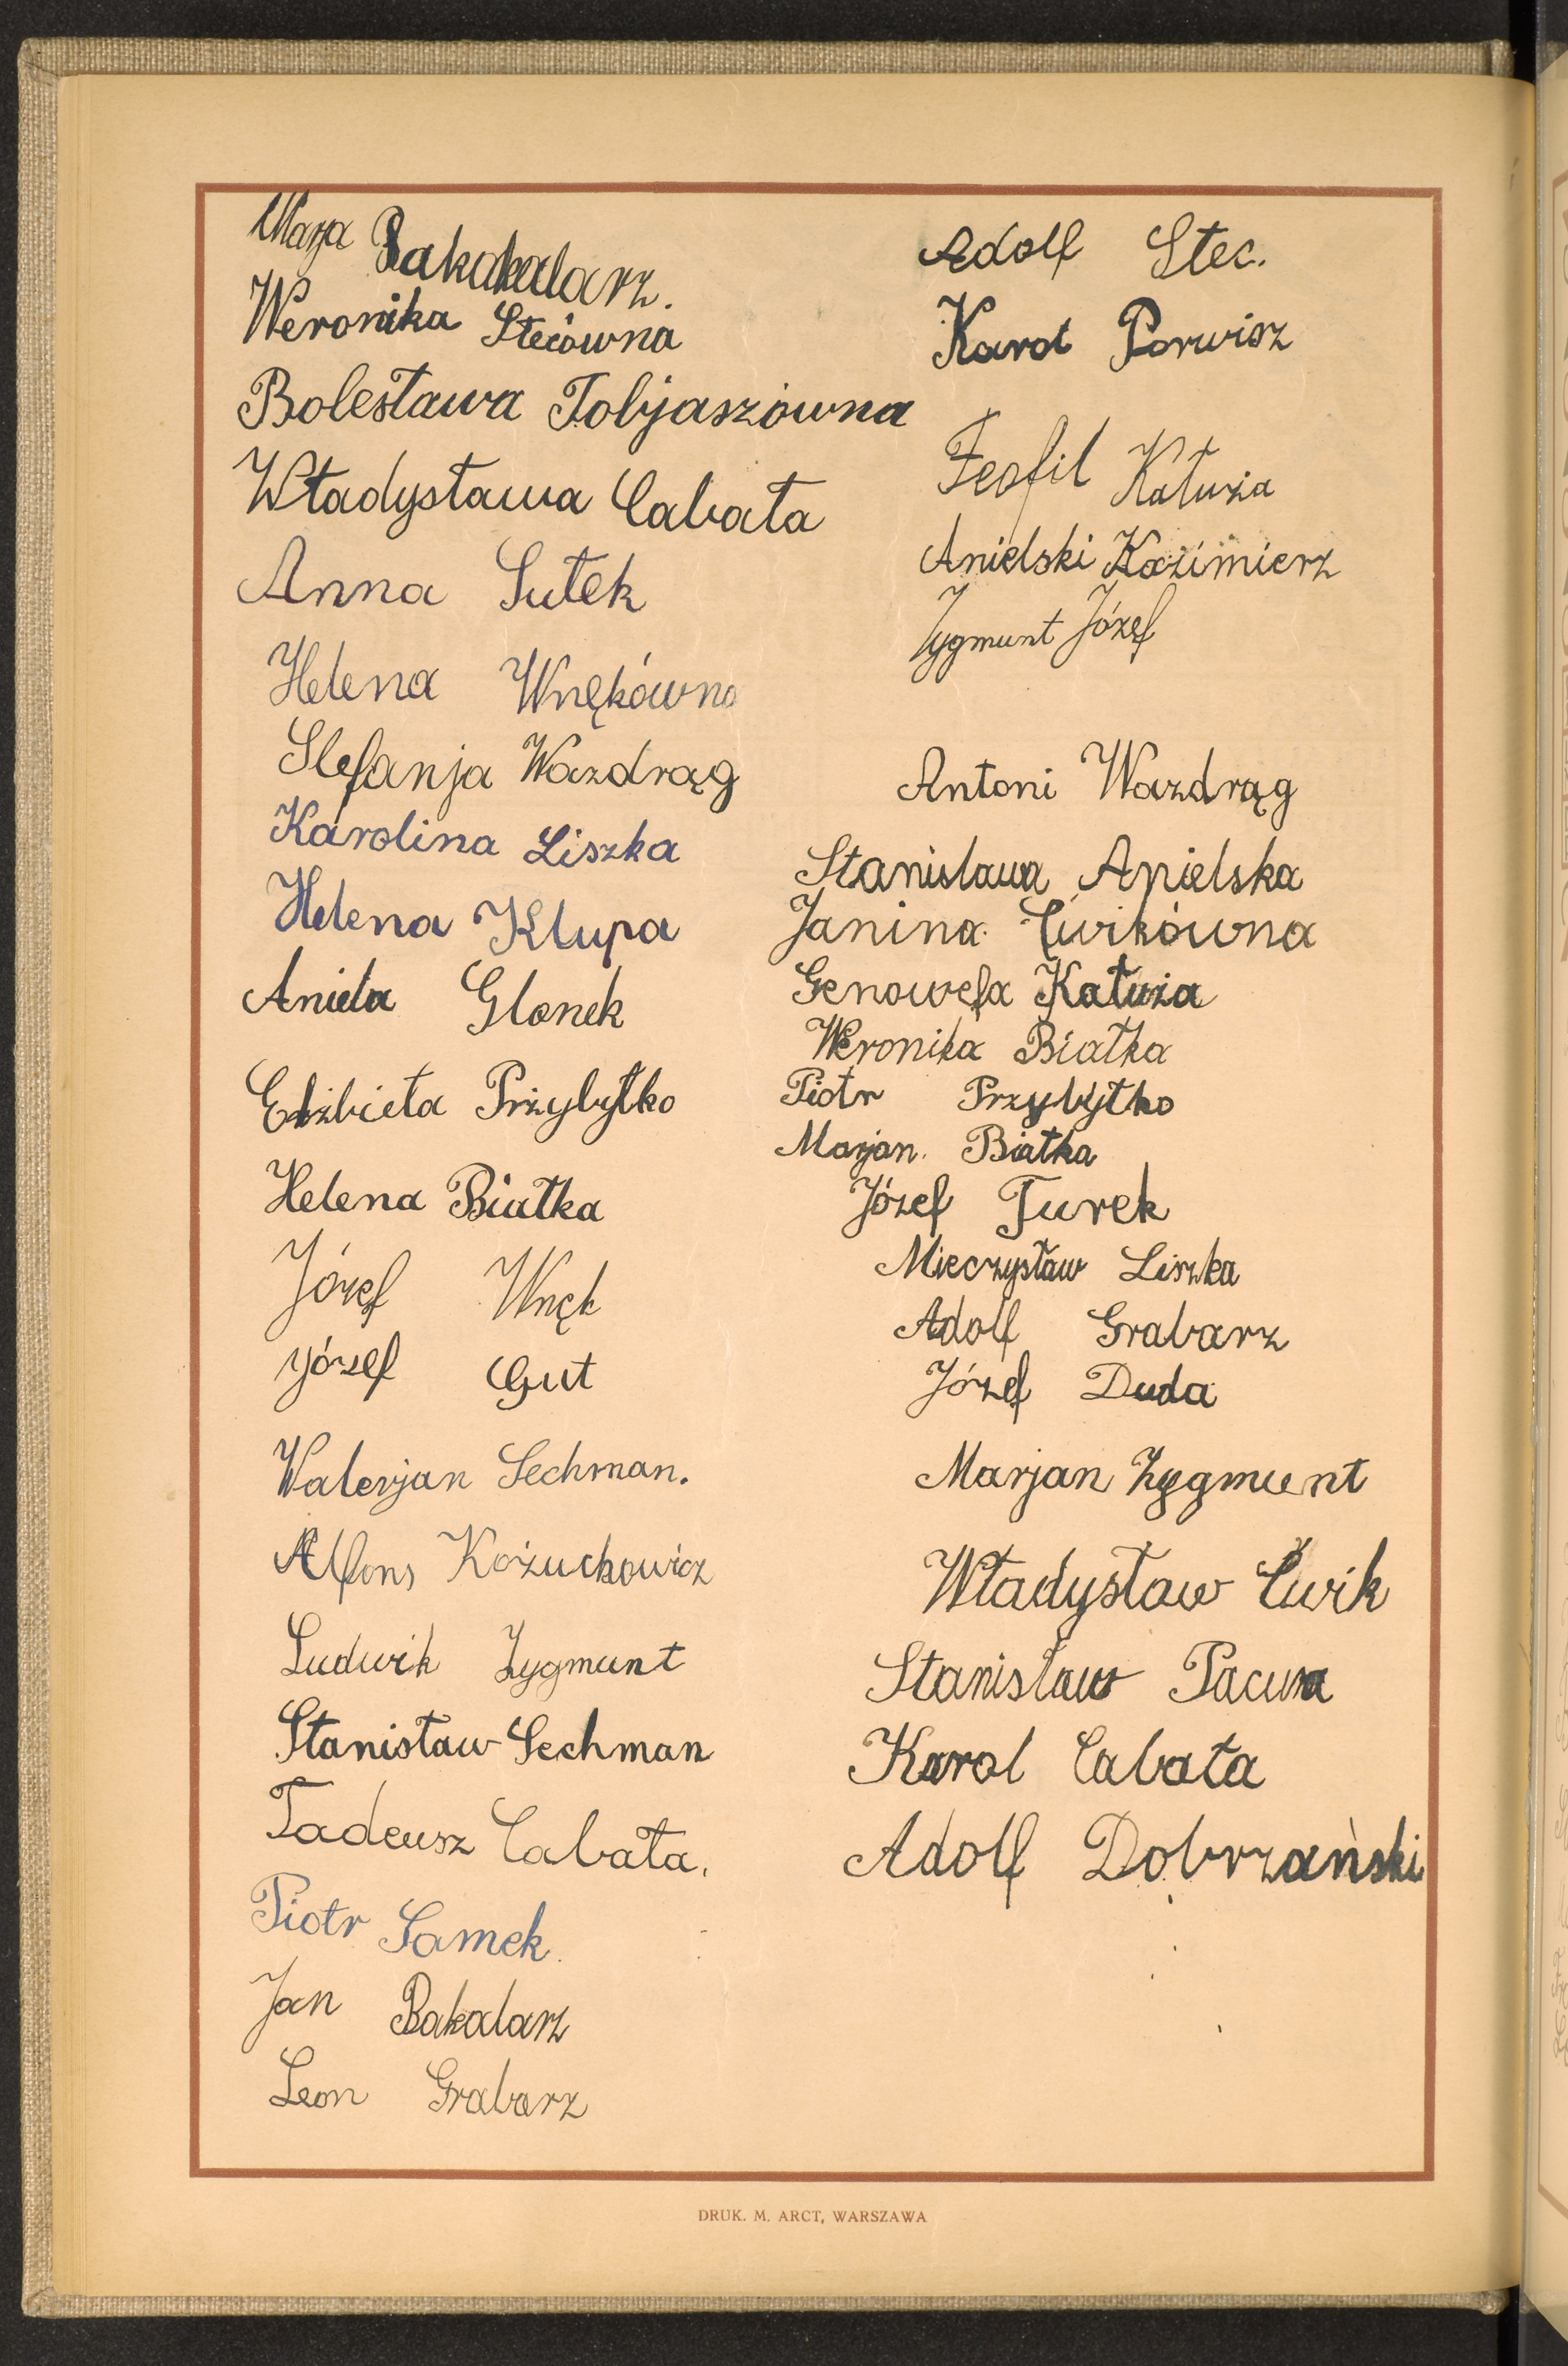 Marja Bakakalarz.
Weronika Stecówna
Bolesława Tobjaszówna
Władysława Cabała
Anna Sutek
Helena Wnękówna
Stefanja Wazdrąg
Karolina Liszka
Helena Klupa
Aniela Glonek
Elżbieta Przybytko
Helena Białka
Józef Wnęk
Józef Gut
Walerjan Sechman.
Alfons Kożuchowicz
Ludwik Zygmunt
Stanisław Sechman
Tadeusz Cabała.
Piotr Samek.
Jan Bakalarz
Leon Grabarz
Adolf Stec.
Karol Porwisz
Teofil Kałuża
Anielski Kazimierz
Zygmunt Józef
Antoni Wazdrąg
Stanisława Anielska
Janina Ćwikówna
Genowefa Kałuża
Weronika Białka
Piotr Przybytko
Marjan. Białka
Józef Turek
Mieczysław Liszka
Adolf Grabarz
Józef Duda
Marjan Zygmunt
Władysław Ćwik
Stanisław Pacuła
Karol Cabała
Adolf Dobrzański
DRUK. M. ARCT, WARSZAWA